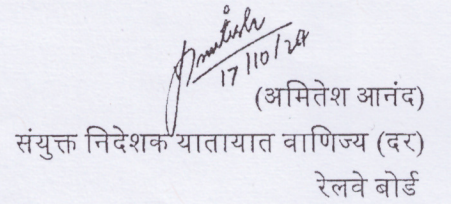 Amitesh
17/10/24
(अमितेश आनंद)
संयुक्त निदेशक यातायात वाणिज्य (दर)
रेलवे बोर्ड